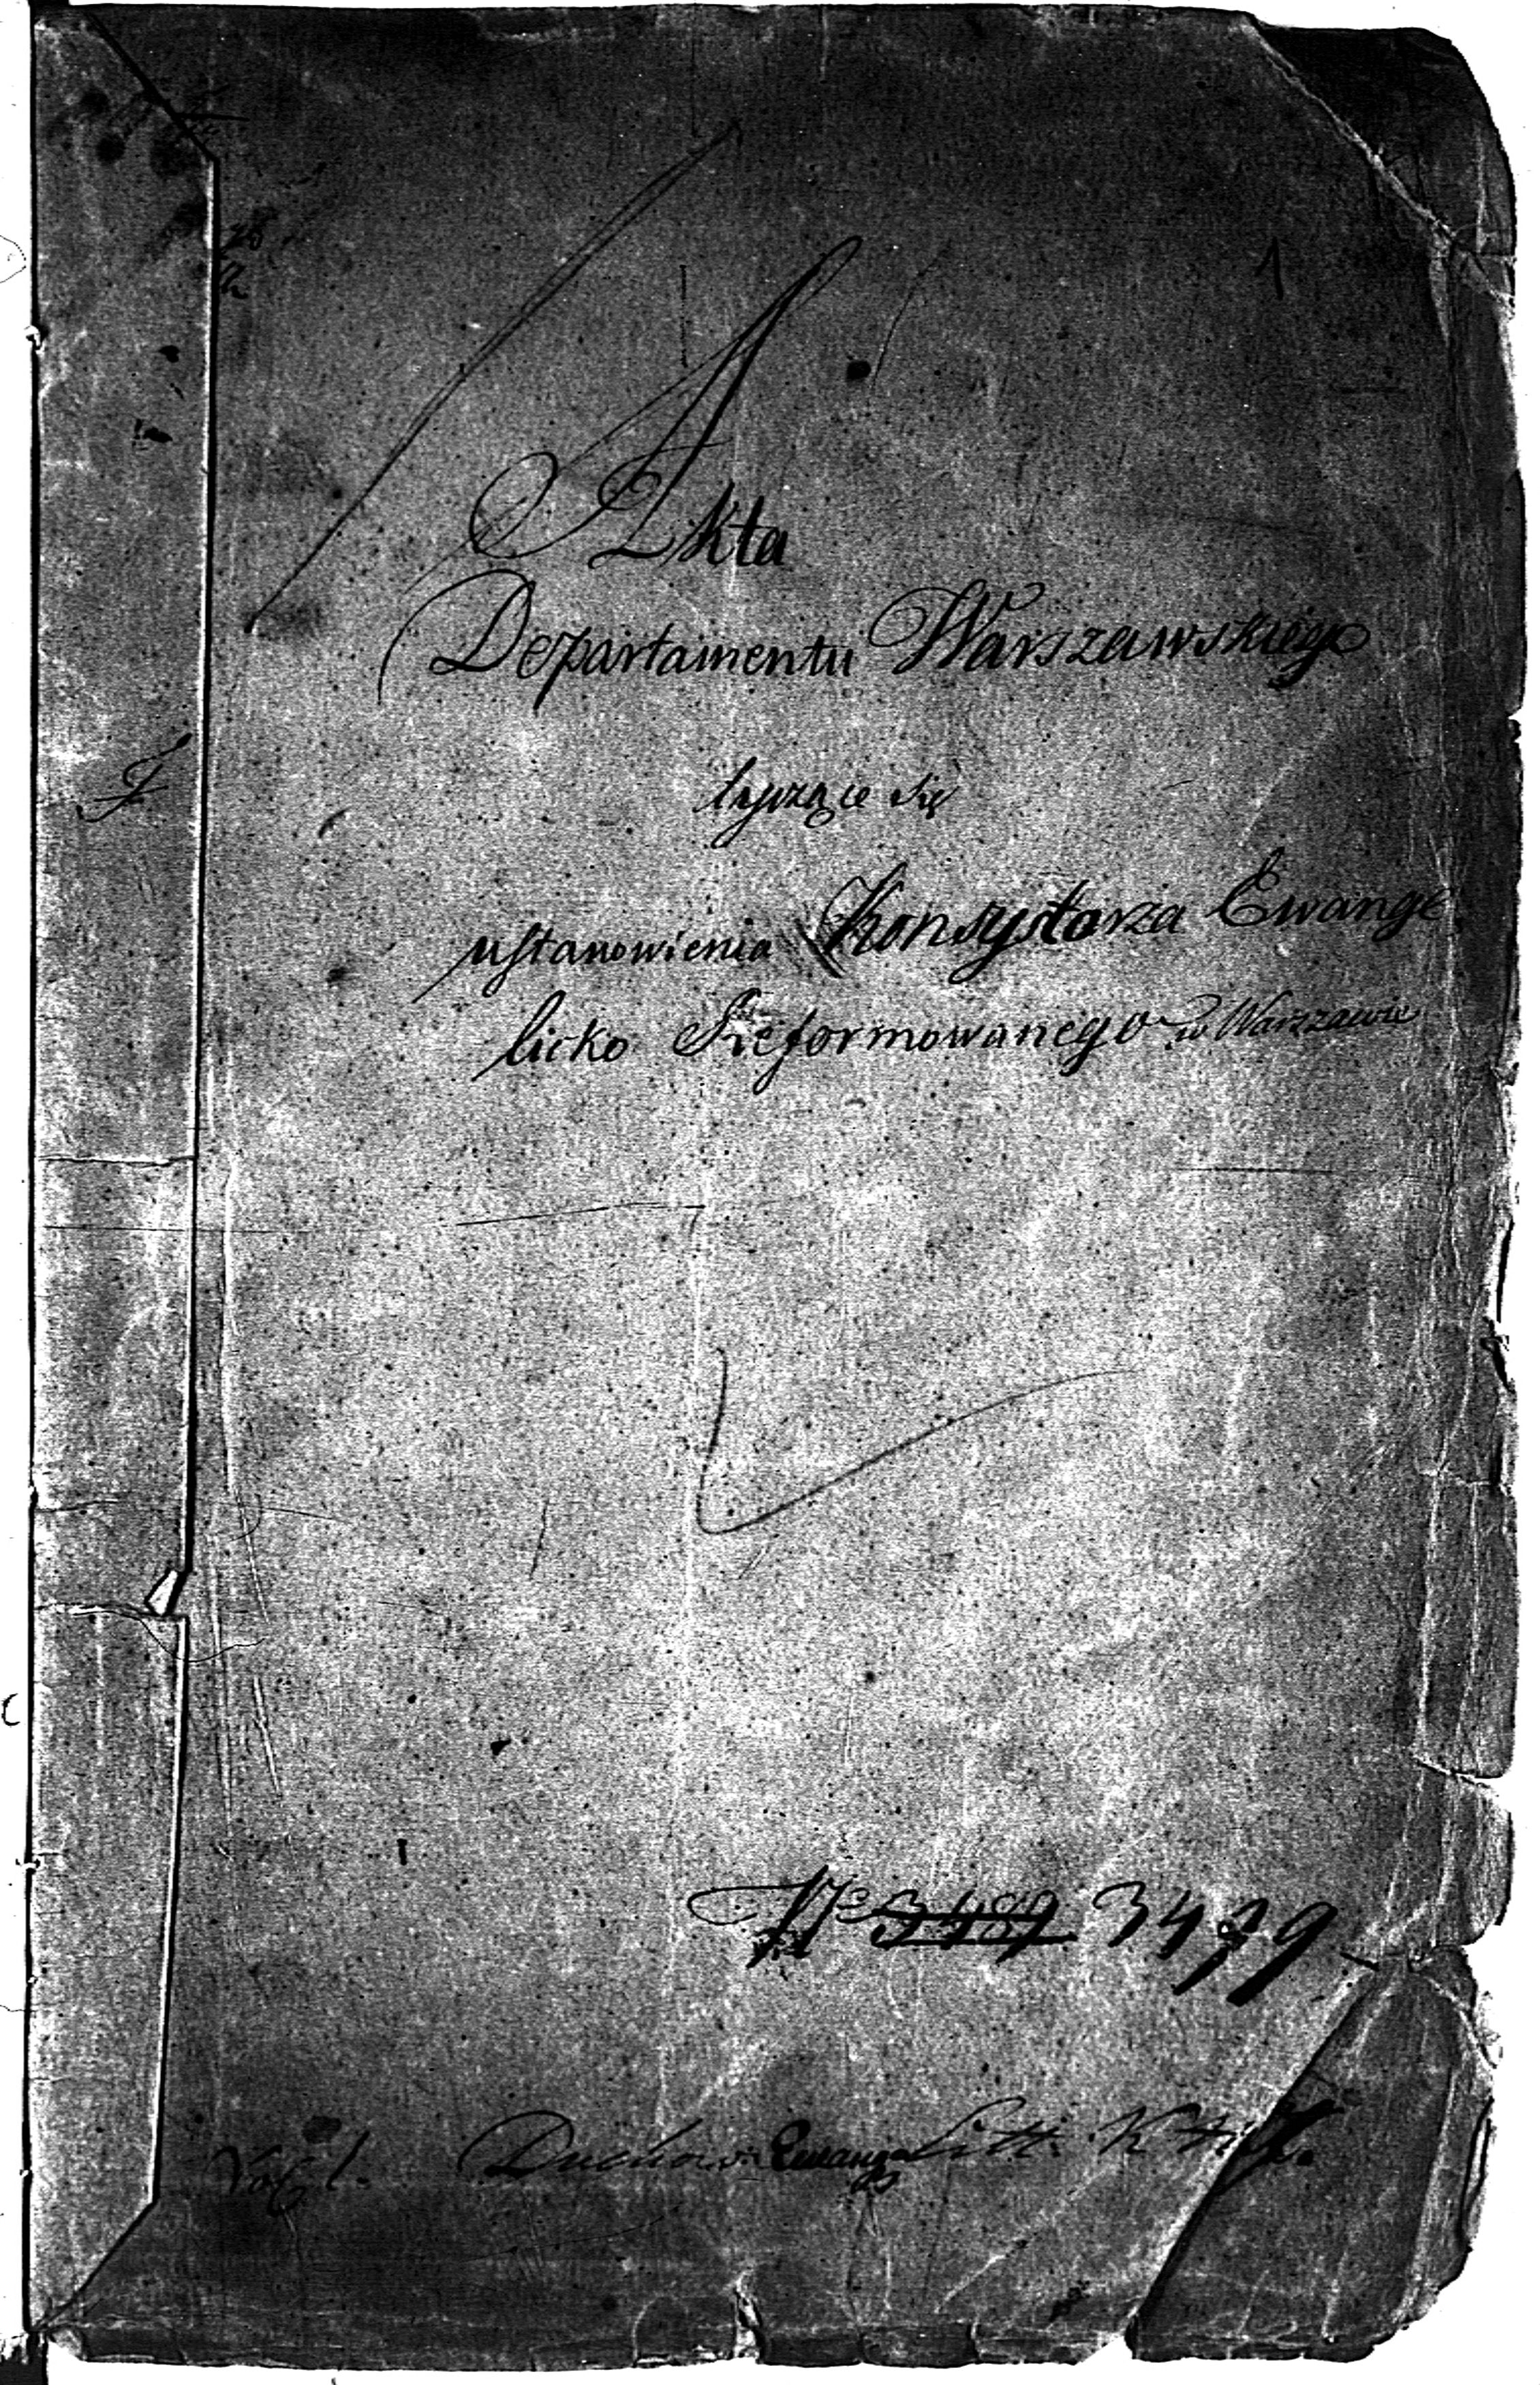 1
Akta
Departamentu Warszawskiego
tyczące się
ustanowienia Konsystorza Ewange
licko Reformowanego w Warszawie
No 3489 3479
Vol 1. Duchow: Ewang Litt: K